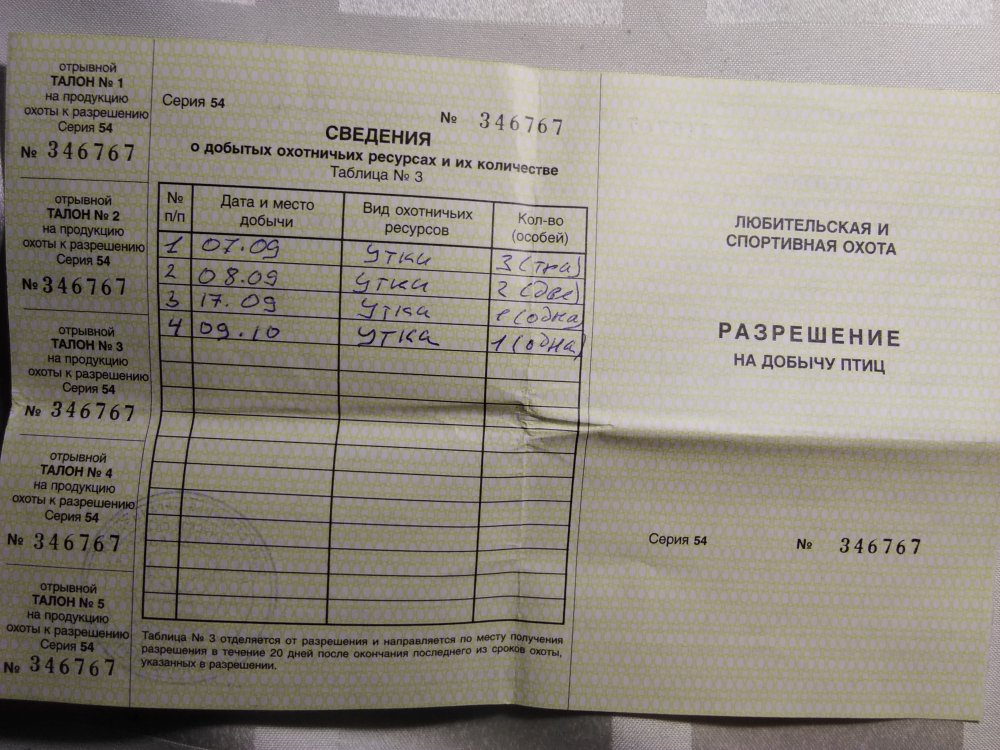 отрывной
ТАЛОН № 1
на продукцию
охоты к разрешению
Серия 54
№ 346767
отрывной
ТАЛОН № 2
на продукцию
охоты к разрешению
Серия 54
№ 346767
отрывной
ТАЛОН № 3
на продукцию
охоты к разрешению
Серия 54
№ 346767
отрывной
ТАЛОН № 4
на продукцию
охоты к разрешению
Серия 54
№ 346767
отрывной
ТАЛОН № 5
на продукцию
охоты к разрешению
Серия 54
№ 346767
Серия 54
№ 346767
СВЕДЕНИЯ
о добытых охотничьих ресурсах и их количестве
Таблица № 3
№ п/п Дата и место добычи Вид охотничьих ресурсов Кол-во (особей)
1 07.09 утки 3 (три)
2 08.09 утки 2 (две)
3 17.09 утка 1 (одна)
4 09.10 утка 1 (одна)
Таблица № 3 отделяется от разрешения и направляется по месту получения
разрешения в течение 20 дней после окончания последнего из сроков охоты,
указанных в разрешении.
ЛЮБИТЕЛЬСКАЯ И
СПОРТИВНАЯ ОХОТА
РАЗРЕШЕНИЕ
НА ДОБЫЧУ ПТИЦ
Серия 54 № 346767